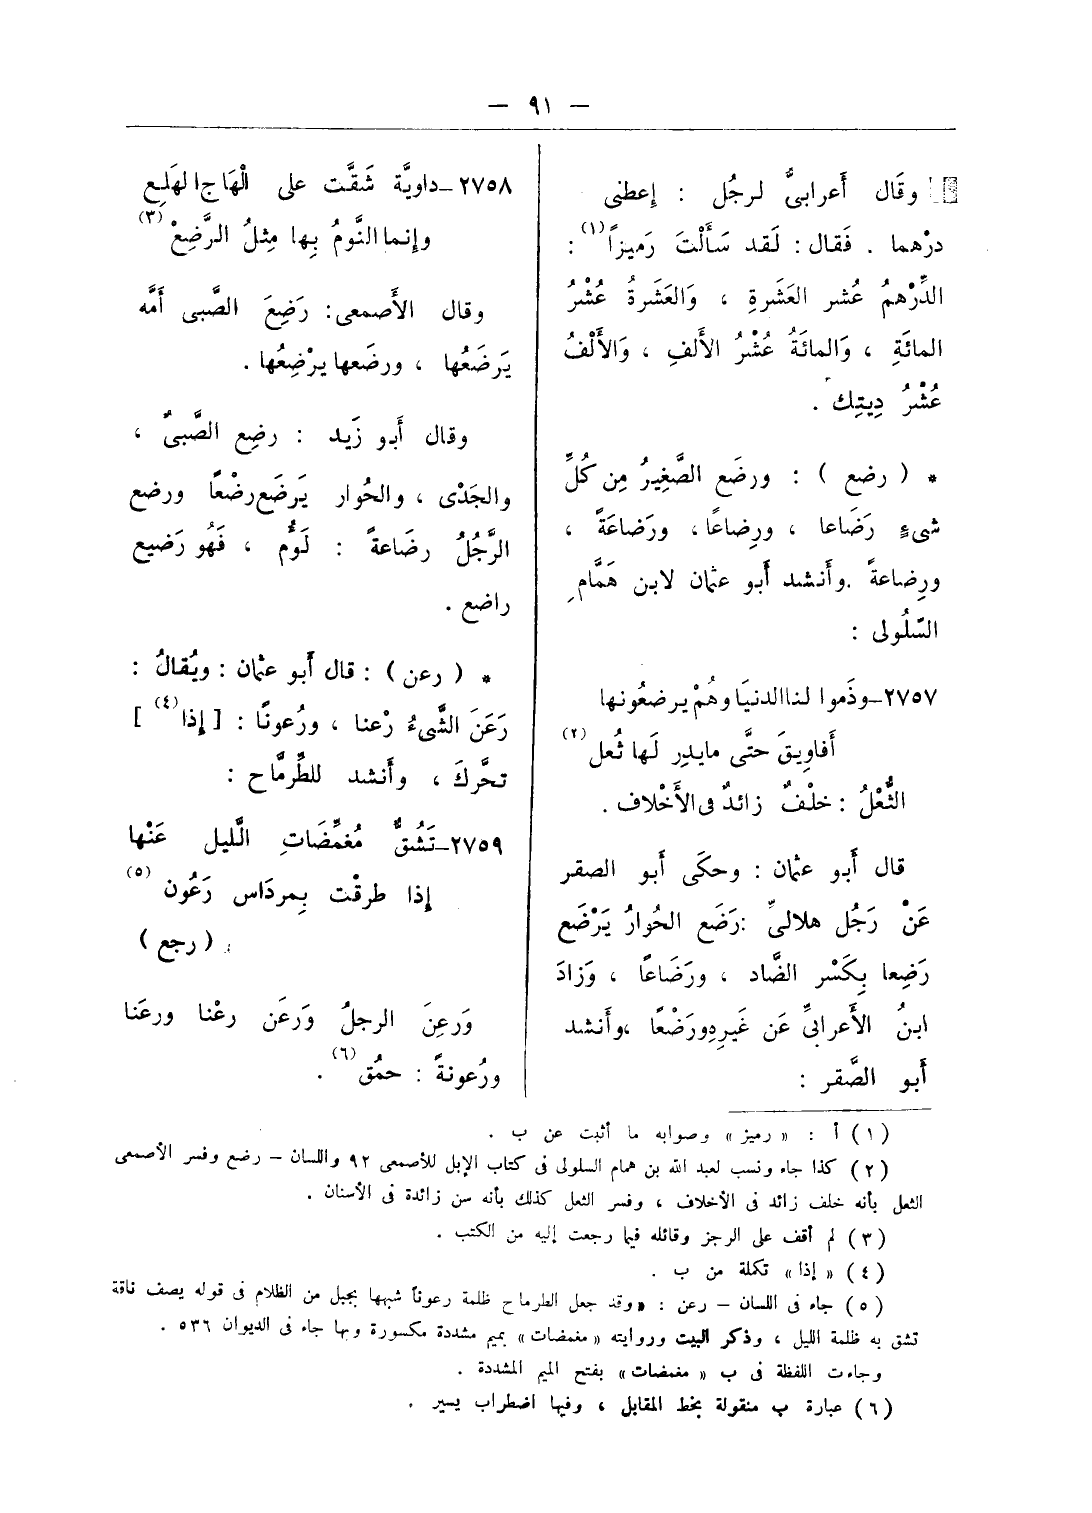 — ٩١ —
وقَال أَعرابىٌّ لرجُل : إعطنى
درْهما . فَقال : لَقد سَأَلْتَ رَميزاً (١) :
الدِّرْهمُ عُشر العَشَرةِ ، وَالعَشَرةُ عُشْرُ
المائَةِ ، وَالمائَةُ عُشْرُ الأَلفِ ، وَالأَلْفُ
عُشْرُ دِيتِك .
* ( رضع ) : ورضَع الصَّغِيرُ مِن كُلِّ
شىءٍ رَضَاعا ، ورِضاعًا، ورَضاعَةً ،
ورِضاعةً .وأَنشد أَبو عثمان لابن هَمَّامِ
السَّلُولى :
٢٧٥٧–وذَموا لنا الدنيَا وهُمْ يرضعُونها
أَفاوِيقَ حتَّى مايدِر لَها ثُعل (٢)
الثُّعْلُ : خلْفٌ زائدٌ فى الأَخْلاف .
قال أَبو عثمان : وحكَى أَبو الصقر
عَنْ رَجُل هلالىٍّ :رَضَع الحُوارُ يَرْضَع
رَضِعا بِكَسْر الضَّاد ، ورَضَاعًا ، وَزادَ
ابنُ الأَعرابىِّ عَن غَيرِهِ ورَضْعًا ،وأَنشد
أَبو الصَّقر :
٢٧٥٨–داويَّة شَقَّت على الْهَاجِ الهَلِع
وإنما النَّومُ بِها مِثلُ الرَّضِعْ (٣)
وقال الأَصمعى: رَضِعَ الصَّبى أَمَّه
يَرضَعُها ، ورضَعها يرْضِعُها .
وقال أَبو زَيد : رضِع الصَّبىُّ ،
والجَدْى ، والحُوار يَرضَع رضْعًا ورضع
الرَّجُلُ رضَاعةً : لَوُّم ، فَهُو رَضيع
راضع .
* ( رعن ) : قال أَبو عثمان : ويُقالُ :
رَعَنَ الشَّىءُ رْعنا ، ورُعونًا : [ إذا (٤) ]
تحَّركَ ، وأَنشد للطِّرمَّاح :
٢٧٥٩–تَشُقُّ مُغمِّضَاتِ الَّليل عَنْها
إذا طرقْت بِمردَاس رَعُون (٥)
( رجع )
وَرعِنَ الرجلُ وَرعَن رعْنا ورعَنا
ورُعونةً : حمُق (٦) .
( ١ ) أ : « رميز » وصوابه ما أثبت عن ب .
( ٢ ) كذا جاء ونسب لعبد الله بن همام السلولى فى كتاب الإبل للأصمعى ٩٢ واللسان – رضع وفسر الأصمعى
الثعل بأنه خلف زائد فى الأخلاف ، وفسر الثعل كذلك بأنه سن زائدة فى الأسنان .
( ٣ ) لم أقف على الرجز وقائله فيما رجعت إليه من الكتب .
( ٤ ) « إذا » تكملة من ب .
( ٥ ) جاء فى اللسان – رعن : «وقد جعل الطرماح ظلمة رعوناً شبهها بجبل من الظلام فى قوله يصف ناقة
تشق به ظلمة الليل ، وذكر البيت وروايته «مغمضات» بميم مشددة مكسورة وبها جاء فى الديوان ٥٣٦ .
وجاءت اللفظة فى ب « مغمضات» بفتح الميم المشددة .
( ٦ ) عبارة ب منقولة بخط المقابل ، وفيها اضطراب يسير .